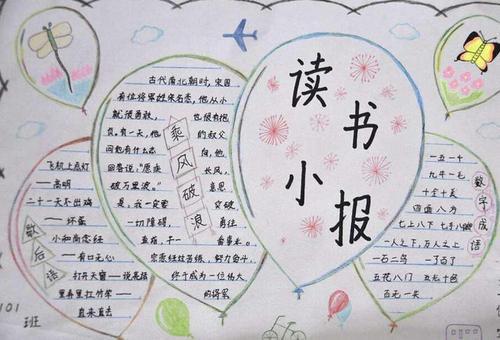 读书
小报
乘风破浪
古代南北朝时,宋国
有位将军姓宗名悫,他从小
就很勇敢,也很有抱
负。有一天,他的叔父
问他有什么志向,他
回答说:"愿乘长风,
破万里浪。"意思
是:我一定要突破
一切障碍,勇往
直前,干一番事业。
宗悫经过苦练,努力奋斗,
终于成为一位伟大
的将军
歇后语
飞机上点灯
——高明
二十一天不出鸡
——坏蛋
小和尚念经
——有口无心
打开天窗——说亮话
里弄里扛竹竿——
直来直去
数字成语
一五一十
九牛一毛
十全十美
四面八方
七上八下 七手八脚
一人之下,万人之上
一石二鸟 一了百了
五花八门 五光十色
百无一失
101
班